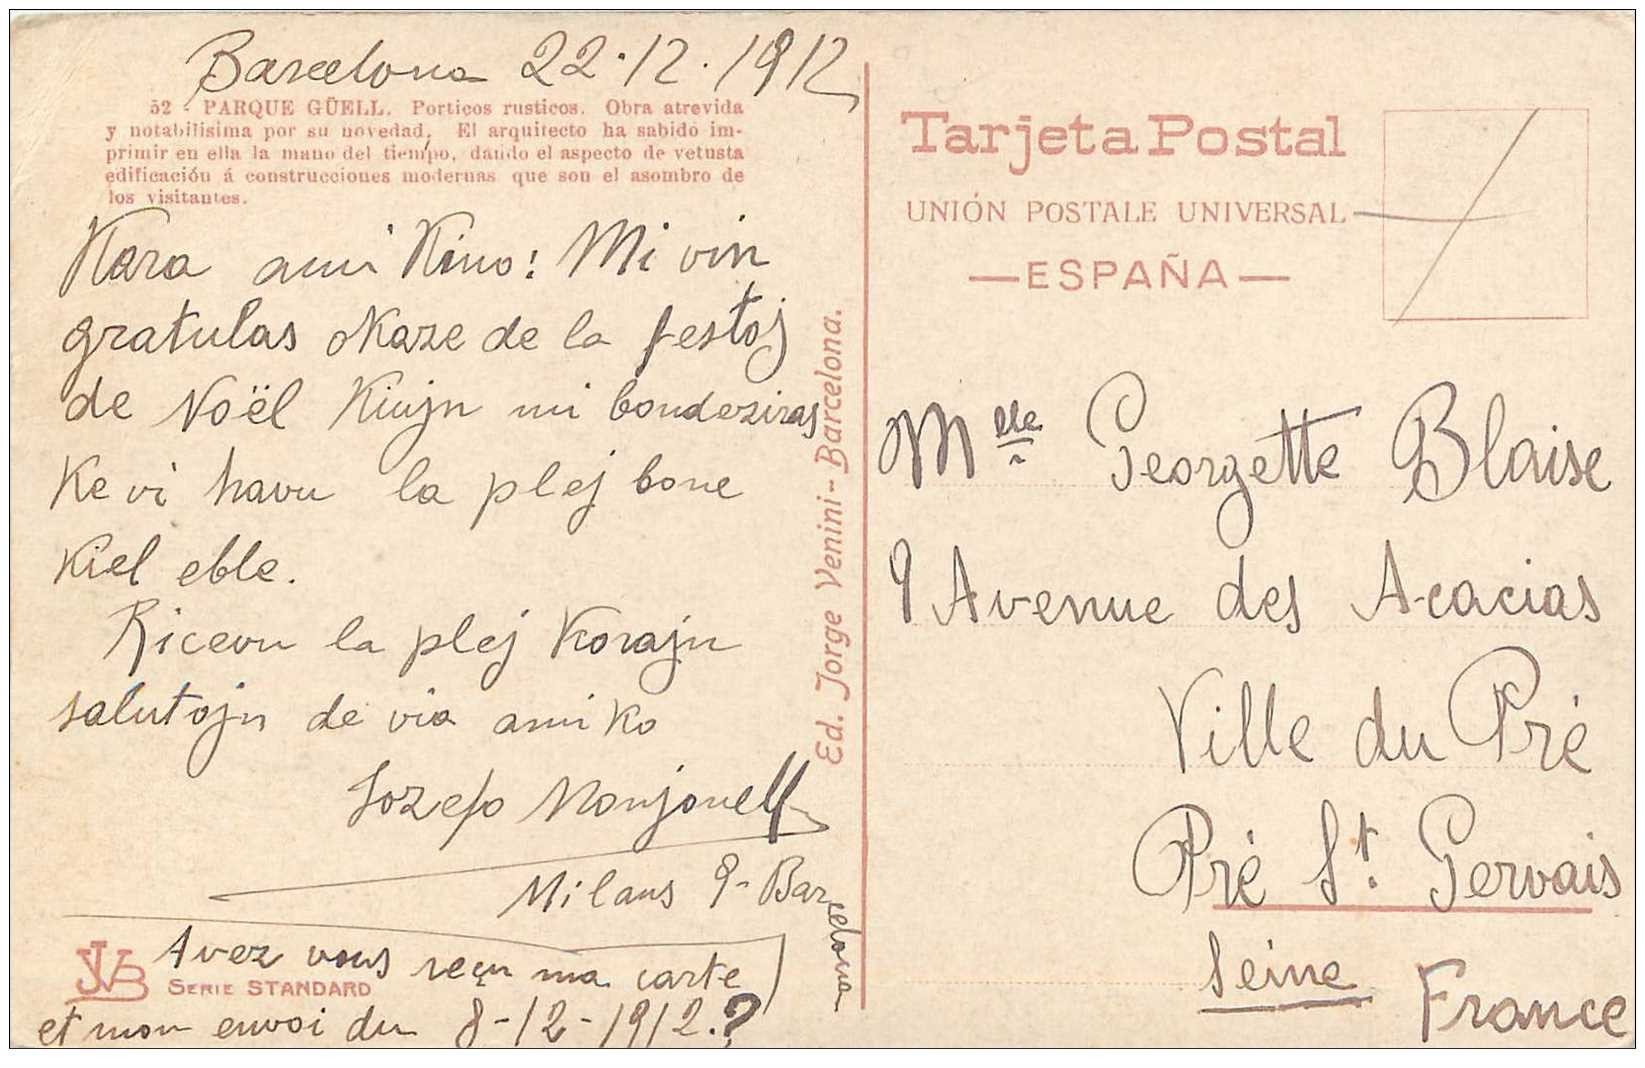 Barcelona 22·12·1912
52 - PARQUE GÜELL. Porticos rusticos. Obra atrevida
y notabilisima por su novedad. El arquitecto ha sabido im-
primir en ella la mano del tiempo, dando el aspecto de vetusta
edificación á construcciones modernas que son el asombro de
los visitantes.
Kara amikino! Mi vin
gratulas okaze de la festoj
de Noël Kiujn mi bondeziras
Ke vi havu la plej bone
Kiel eble.
Ricevu la plej Korajn
salutojn de via amiko
Jozefo
Milans 9 - Barcelona
Avez vous reçu ma carte
et mon envoi du 8-12-1912.?
JVB
SERIE STANDARD
Ed. Jorge Venini - Barcelona.
Tarjeta Postal
UNIÓN POSTALE UNIVERSAL
—ESPAÑA—
Mlle Georgette Blaise
9 Avenue des Acacias
Ville du Pré
Pré St. Gervais
Seine
France